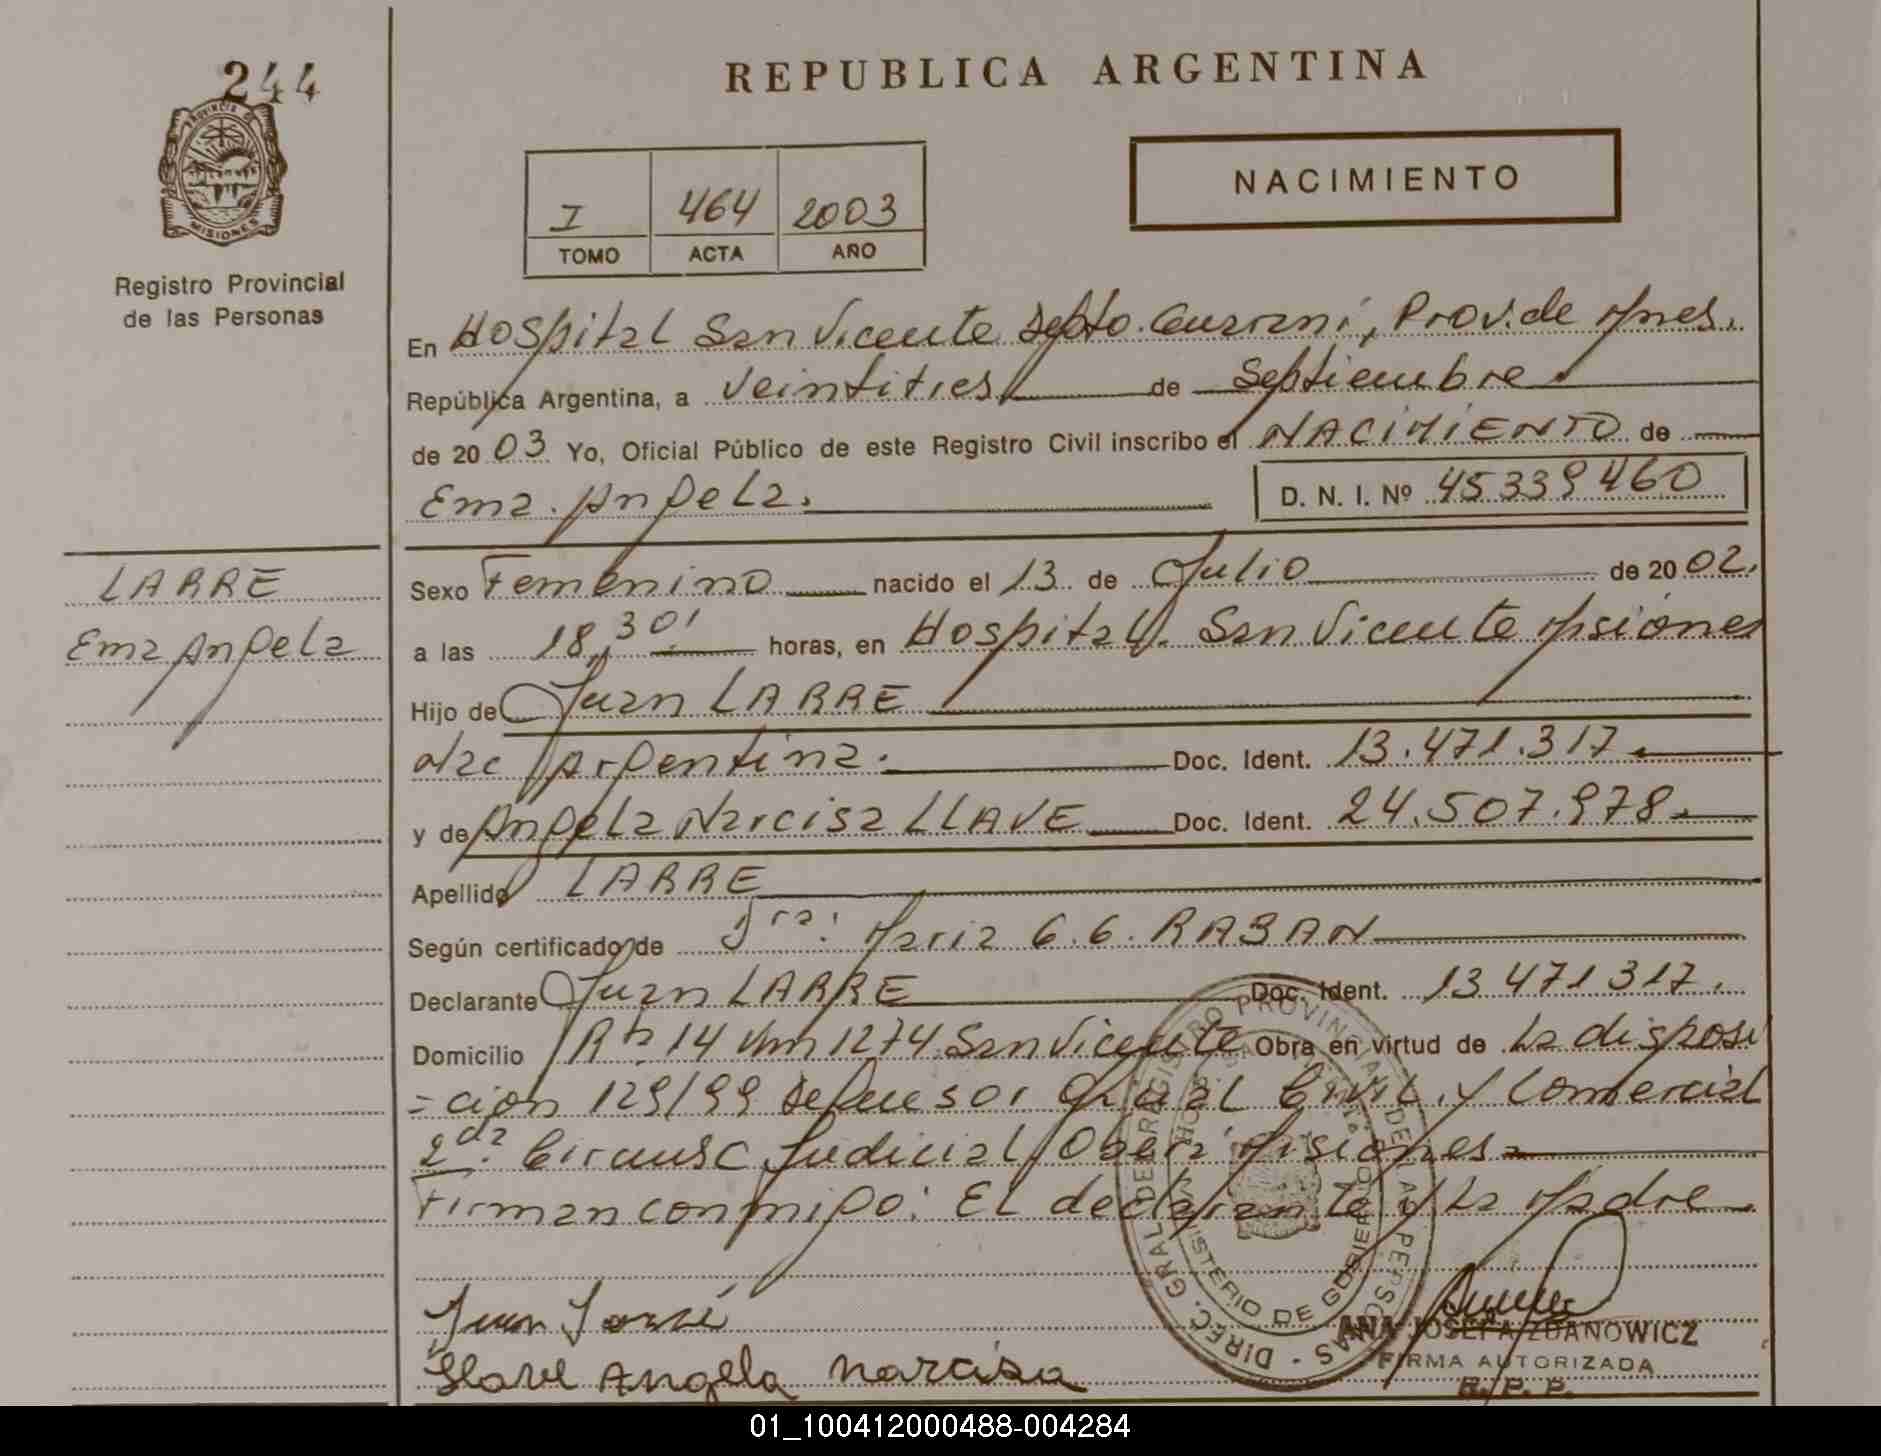 244
REPUBLICA ARGENTINA
PROVINCIA DE
MISIONES
Registro Provincial
de las Personas
I 464 2003
TOMO ACTA AÑO
NACIMIENTO
En Hospital San Vicente Depto. Guarani, Prov. de Mnes.
República Argentina, a veintitres de Septiembre
de 2003 Yo, Oficial Público de este Registro Civil inscribo el NACIMIENTO de
Ema Angela.
D. N. I. Nº 45339460
LARRE
Ema Angela
Sexo Femenino nacido el 13 de Julio de 2002.
a las 18,30' horas, en Hospital San Vicente Misiones
Hijo de Juan LARRE
nac Argentina. Doc. Ident. 13.471.317.
y de Angela Narcisa LLAVE Doc. Ident. 24.507.978.
Apellido LARRE
Según certificado de Dra: Maria G. G. RABAN
Declarante Juan LARRE Doc. Ident. 13 471 317.
Domicilio Rta 14 Km 1274 San Vicente Obra en virtud de La disposi
=cion 129/99 Defensor Oficial Civil y Comercial
2da Circunsc Judicial Obera Misiones=
Firman conmigo: EL declarante y La Madre.
Juan Larré
Llave Angela Narcisa
DIREC. GRAL. DE REGISTRO PROVINCIAL DE LAS PERSONAS
MINISTERIO DE GOBIERNO
ANA JOSEFA ZDANOWICZ
FIRMA AUTORIZADA
R. P. P.
01_100412000488-004284